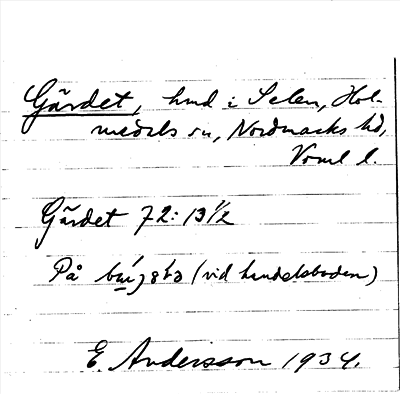 Gärdet, hmd i Selen, Hol-
medals sn, Nordmarks hd,
Vrml l.
Gärdet 72: 13 1/2
På (vid handelsboden)
E. Andersson 1934.